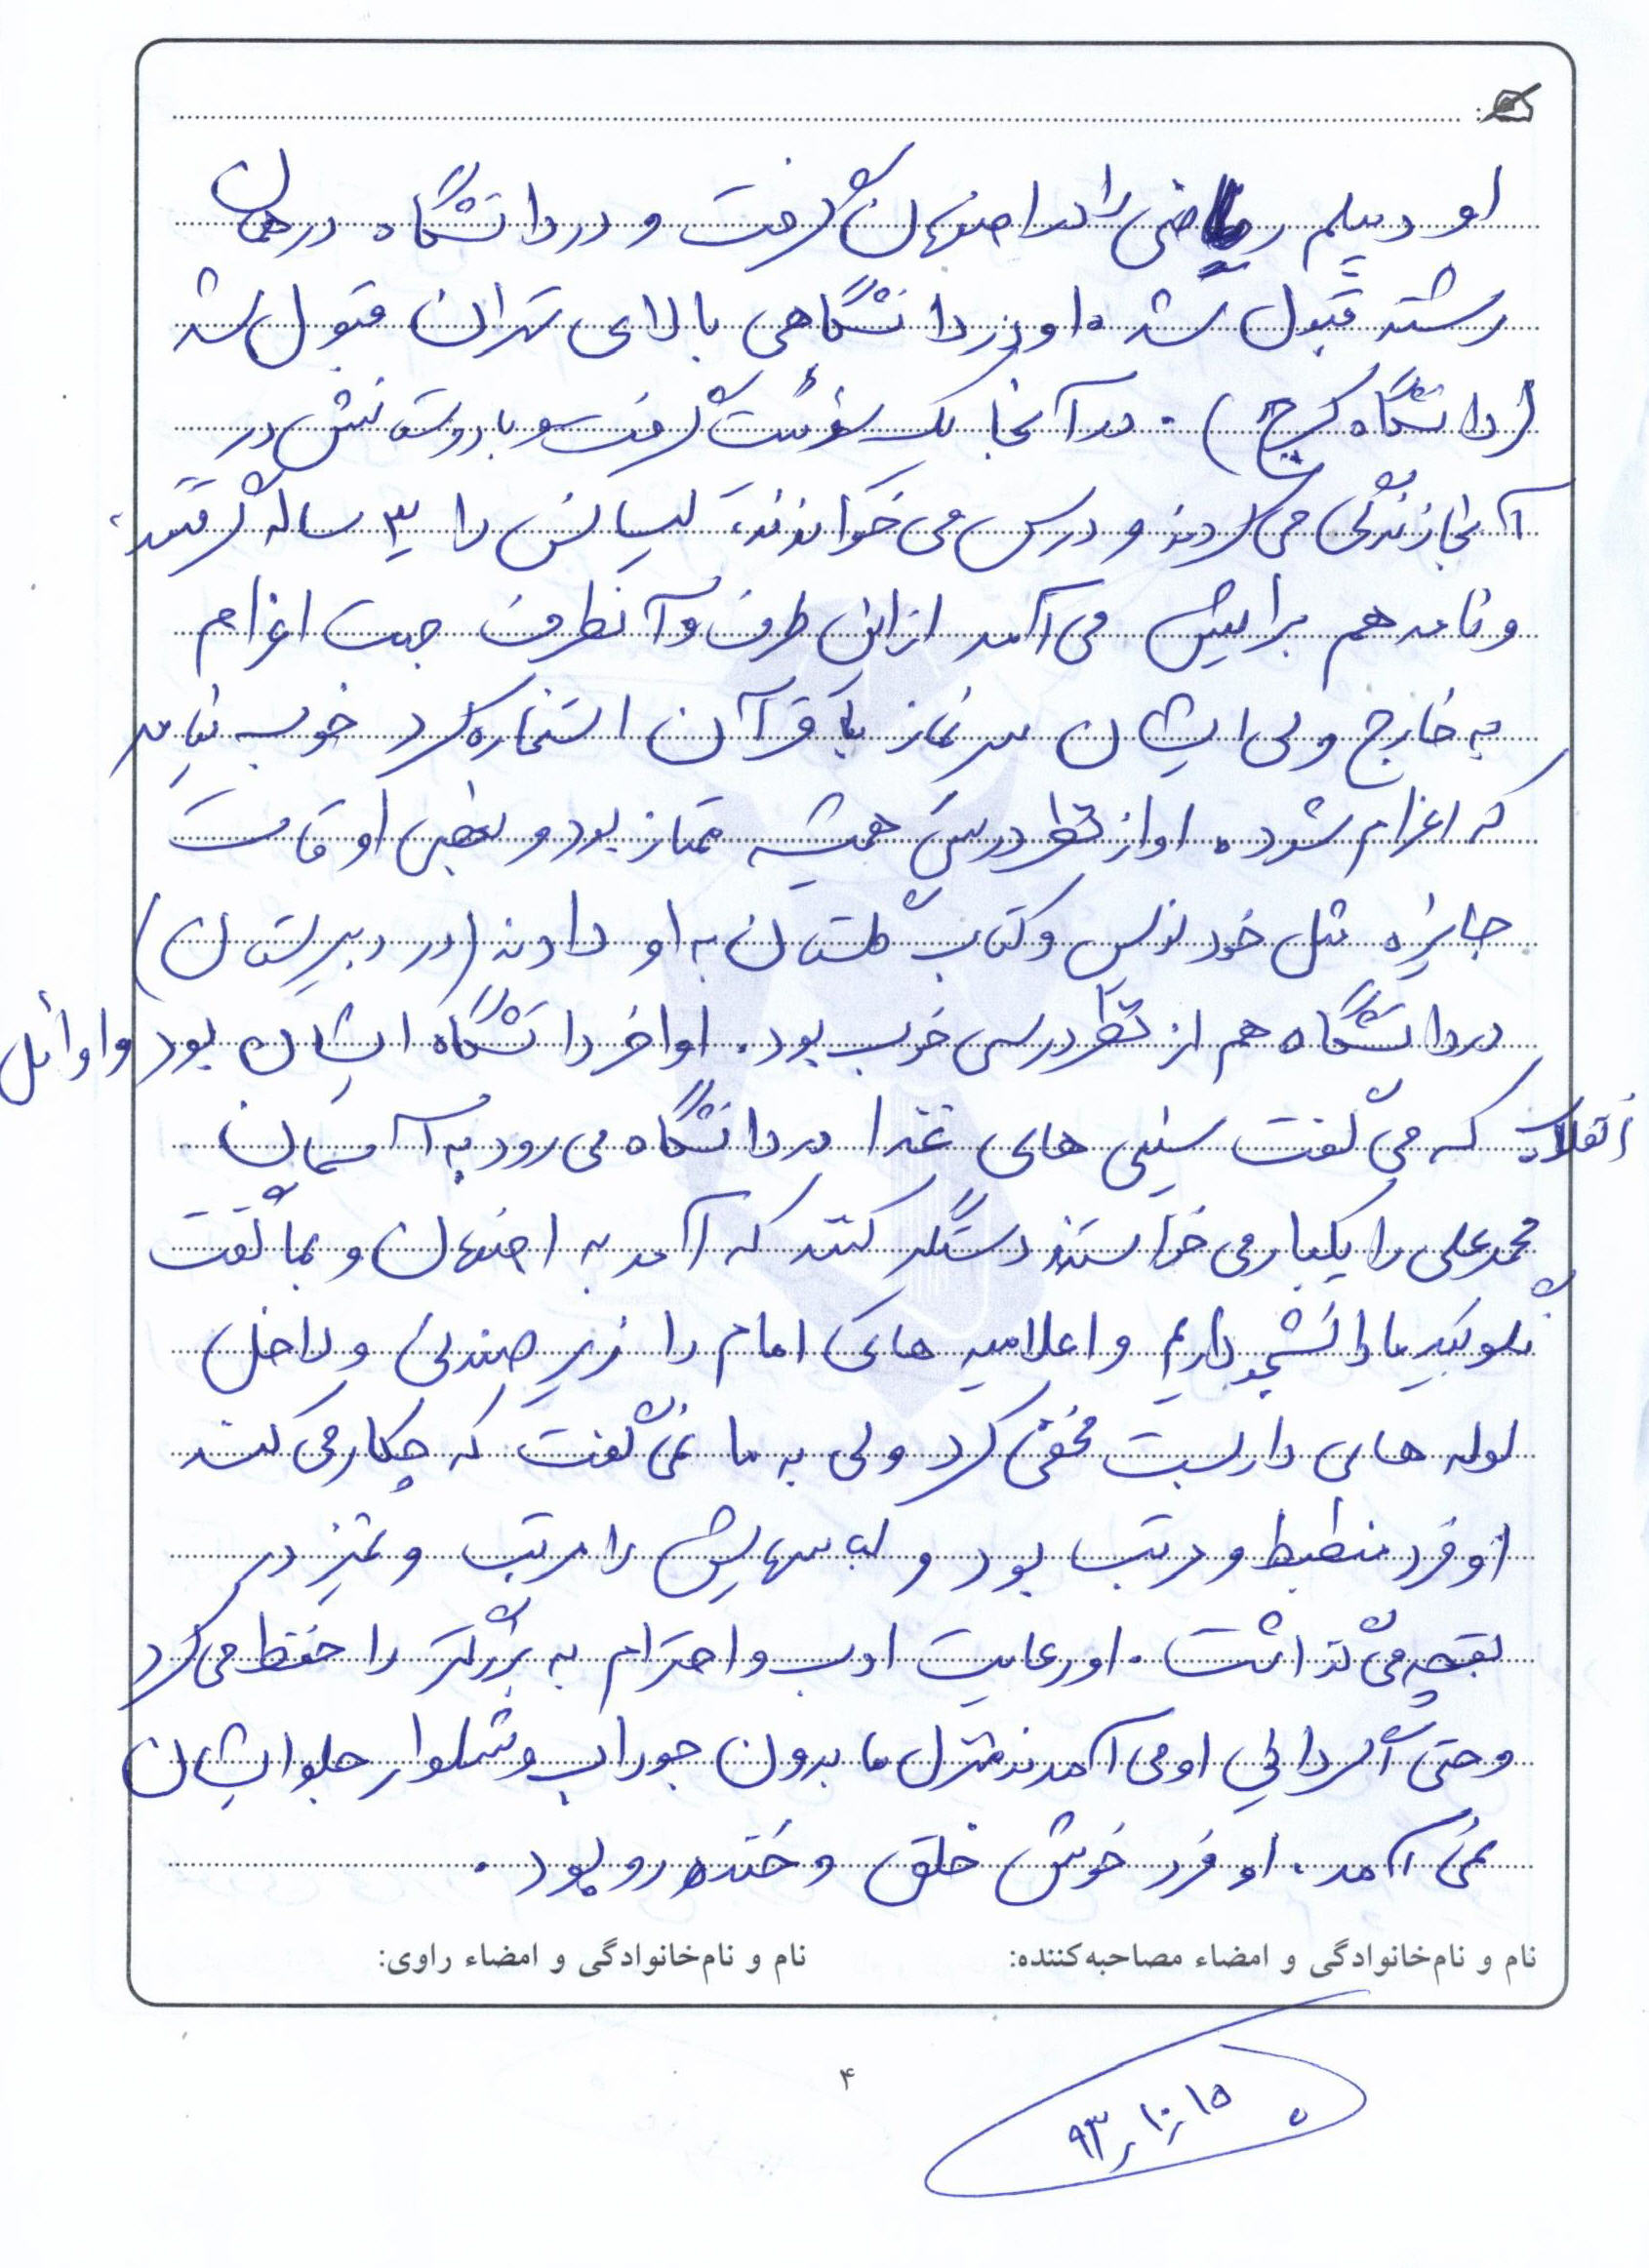 او دیپلم ریاضی را در اصفهان گرفت و در دانشگاه در همان
رشته قبول شد. او در دانشگاهی بالای تهران قبول شد
(دانشگاه کرج). در آنجا یک سوئیت گرفت و با دوستانش در
آنجا زندگی می کردند و درس می خواندند، لیسانس را ۳ ساله گرفتند
و نامه هم برایش می آمد از این طرف و آنطرف جهت اعزام
به خارج ولی ایشان سر نماز با قرآن استخاره کرد خوب نیامد
که اعزام شود. او از نظر درسی همیشه ممتاز بود و بعضی اوقات
جایزه مثل خودنویس و کتاب گلستان به او دادند (در دبیرستان)
در دانشگاه هم از نظر درسی خوب بود. اواخر دانشگاه ایشان بود و اوائل
انقلاب که می گفت سینی های غذا در دانشگاه می رود به آسمان
محمدعلی را یکبار می خواستند دستگیر کنند که آمد به اصفهان و بما گفت
نگوئید ما دانشجو داریم و اعلامیه های امام را زیر صندلی و داخل
لوله های داربست مخفی کرد ولی به ما نمی گفت که چکار می کند
او فرد منضبط و مرتب بود و لباسهایش را مرتب و تمیز در
بقچه می گذاشت. او رعایت ادب و احترام به بزرگتر را حفظ می کرد
و حتی اگر دائی او می آمدند منزل ما بدون جوراب و شلوار جلو ایشان
نمی آمد. او فرد خوش خلق و خنده رو بود.
نام و نام‌خانوادگی و امضاء مصاحبه‌کننده: نام و نام‌خانوادگی و امضاء راوی:
۴
۹۳٫۱۰٫۱۵